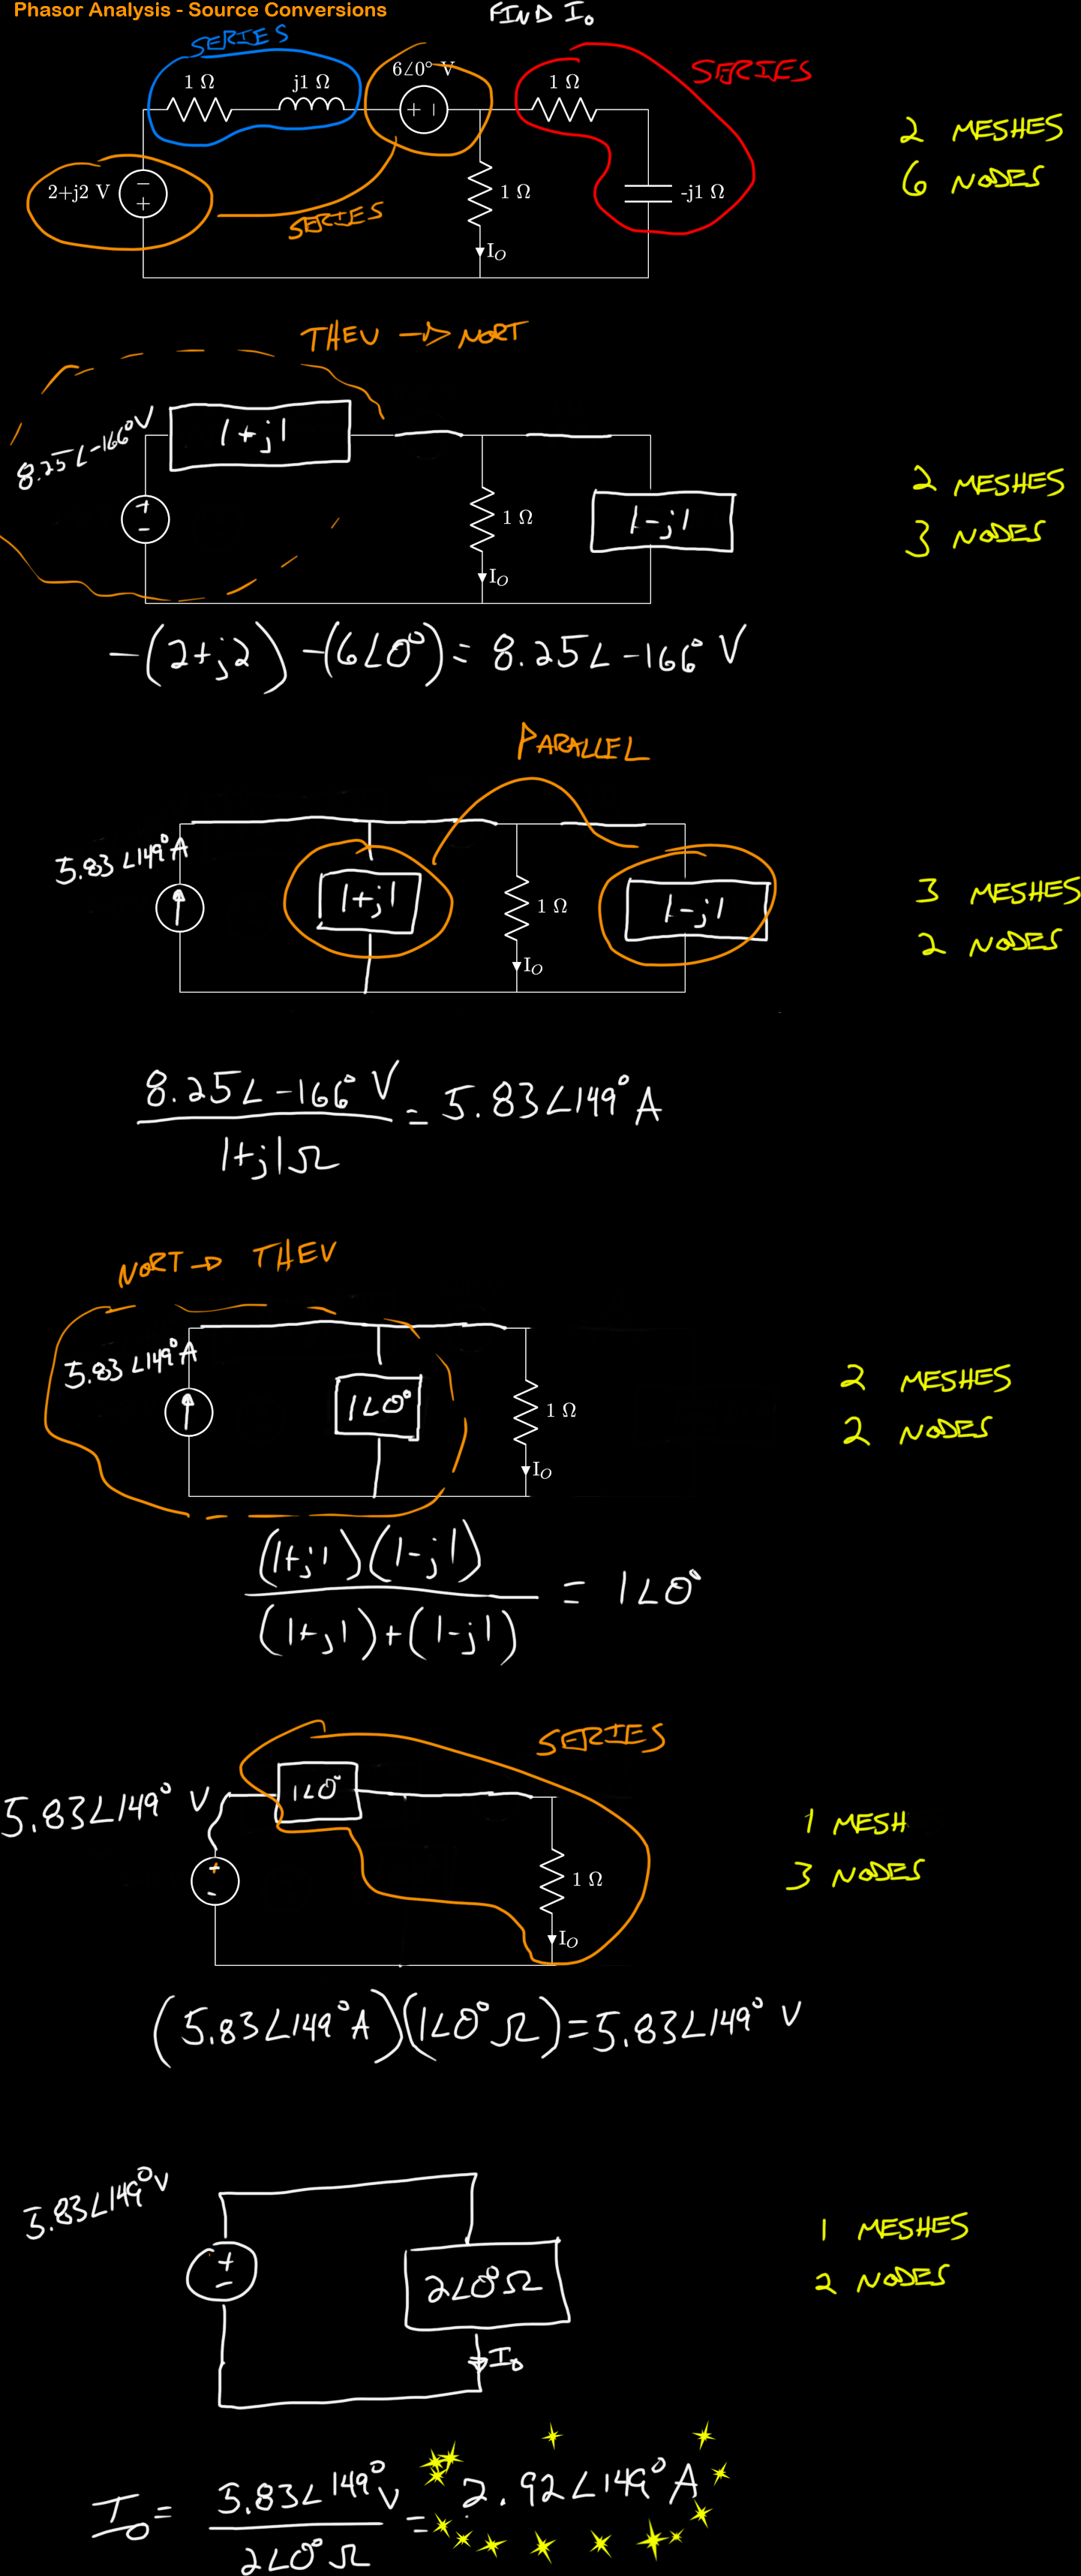 Phasor Analysis - Source Conversions
FIND I₀
SERIES
1 Ω
j1 Ω
6∠0° V
1 Ω
SERIES
2+j2 V
SERIES
1 Ω
-j1 Ω
I_O
2 MESHES
6 NODES
THEV → NORT
8.25∠-166° V
1+j1
1 Ω
1-j1
I_O
2 MESHES
3 NODES
-(2+j2) -(6∠0°) = 8.25∠-166° V
PARALLEL
5.83∠149° A
1+j1
1 Ω
1-j1
I_O
3 MESHES
2 NODES
8.25∠-166° V
= 5.83∠149° A
1+j1Ω
NORT → THEV
5.83∠149° A
1∠0°
1 Ω
I_O
2 MESHES
2 NODES
(1+j1)(1-j1)
= 1∠0°
(1+j1)+(1-j1)
SERIES
5.83∠149° V
1∠0°
1 Ω
I_O
1 MESH
3 NODES
(5.83∠149° A)(1∠0° Ω) = 5.83∠149° V
5.83∠149° V
2∠0° Ω
I₀
1 MESHES
2 NODES
I₀ = 5.83∠149° V
= 2.92∠149° A
2∠0° Ω